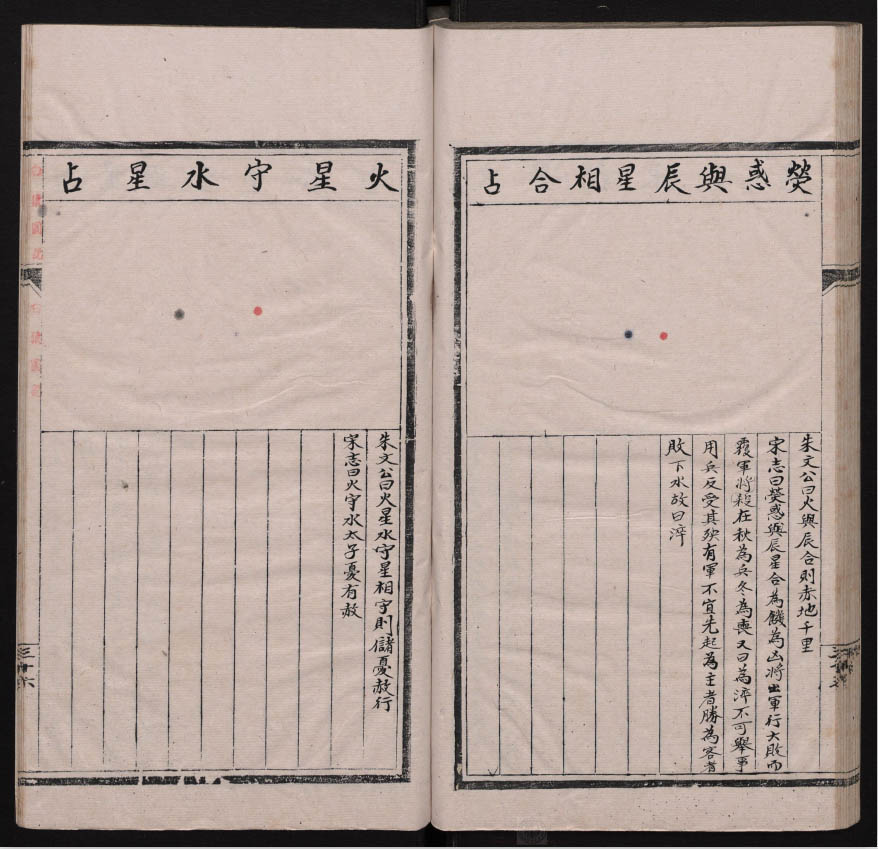 熒惑與辰星相合占
朱文公曰火與辰合則赤地千里
宋志曰熒惑與辰星合為饑為凶將出軍行大敗而
覆軍將殺在秋為兵冬為喪又曰為淬不可舉事
用兵反受其殃有軍不宜先起為主者勝為客者
敗下水故曰淬
火星守水星占
朱文公曰火星水守星相守則儲憂赦行
宋志曰火守水太子憂有赦
三十六